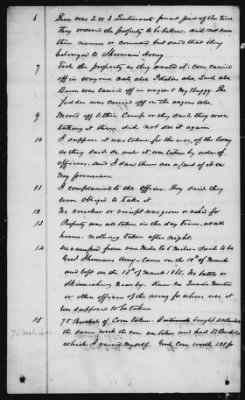 6 There was 2 or 3 Lieutenants present part of the time
They ordered the property to be taken. did not know
their names or command but said that they
belonged to Shermans Army.
7 Took the property as they wanted it: corn carried
off in wagons oats also. Potatoes also Lard also
Bacon was carried off in wagon & My Buggy. The
Fodder was carried off on the wagons also.
9 Moved off to their Camps or they said they were
taking it there, did not see it again
10 I suppose it was taken for the use of the army
as they said so and it was taken by order of
officers, and I saw them use a part of it on
My premises
11 I complained to the officers. They said they
were obliged to take it
12 No voucher or receipt was given or asked for
13 Property was all taken in the day time, at all
hours. nothing taken after night.
14 encamped from one mile to 5 miles. Said to be
Genl Shermans Army. Came on the 10th of March
and left on the 15th of March 1865. No battle or
Skirmishing near by. Knew no Quarter Master
or other officers of the army for whose use it
was supposed to be taken
15 75 Bushels of Corn taken.
the same week the corn was taken and had 83 Bushels
which I raised Myself. Good Corn worth